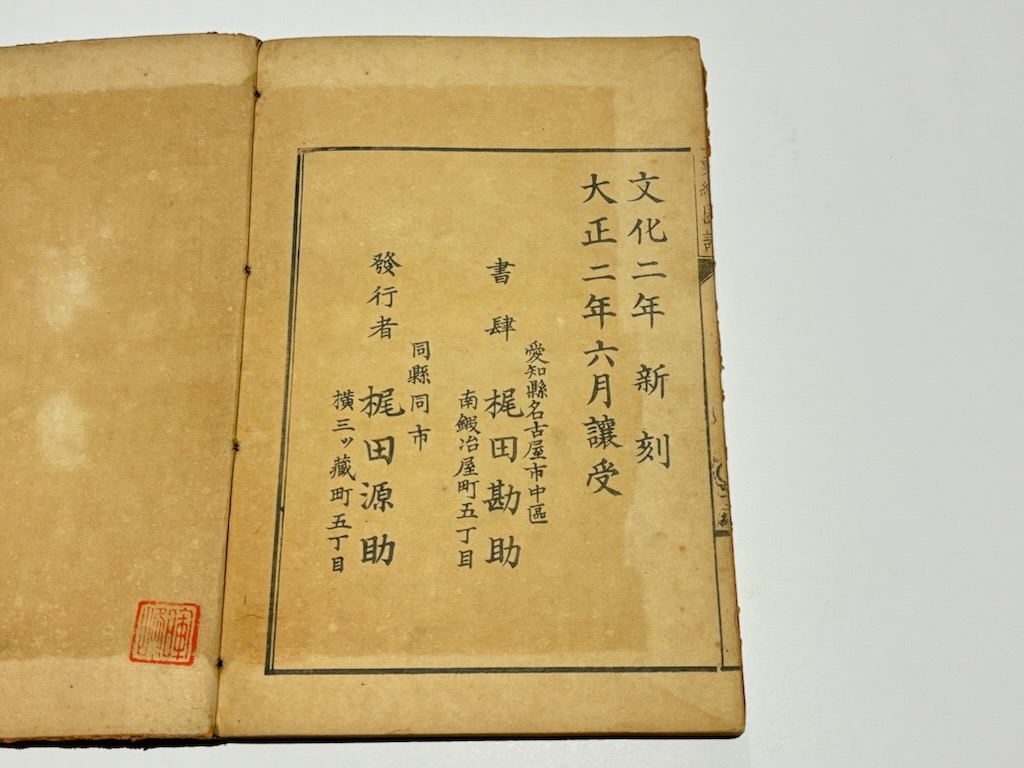 文化二年 新刻
大正二年六月讓受
愛知縣名古屋市中區
南鍛冶屋町五丁目
書肆 梶田勘助
同縣同市
橫三ッ藏町五丁目
發行者 梶田源助